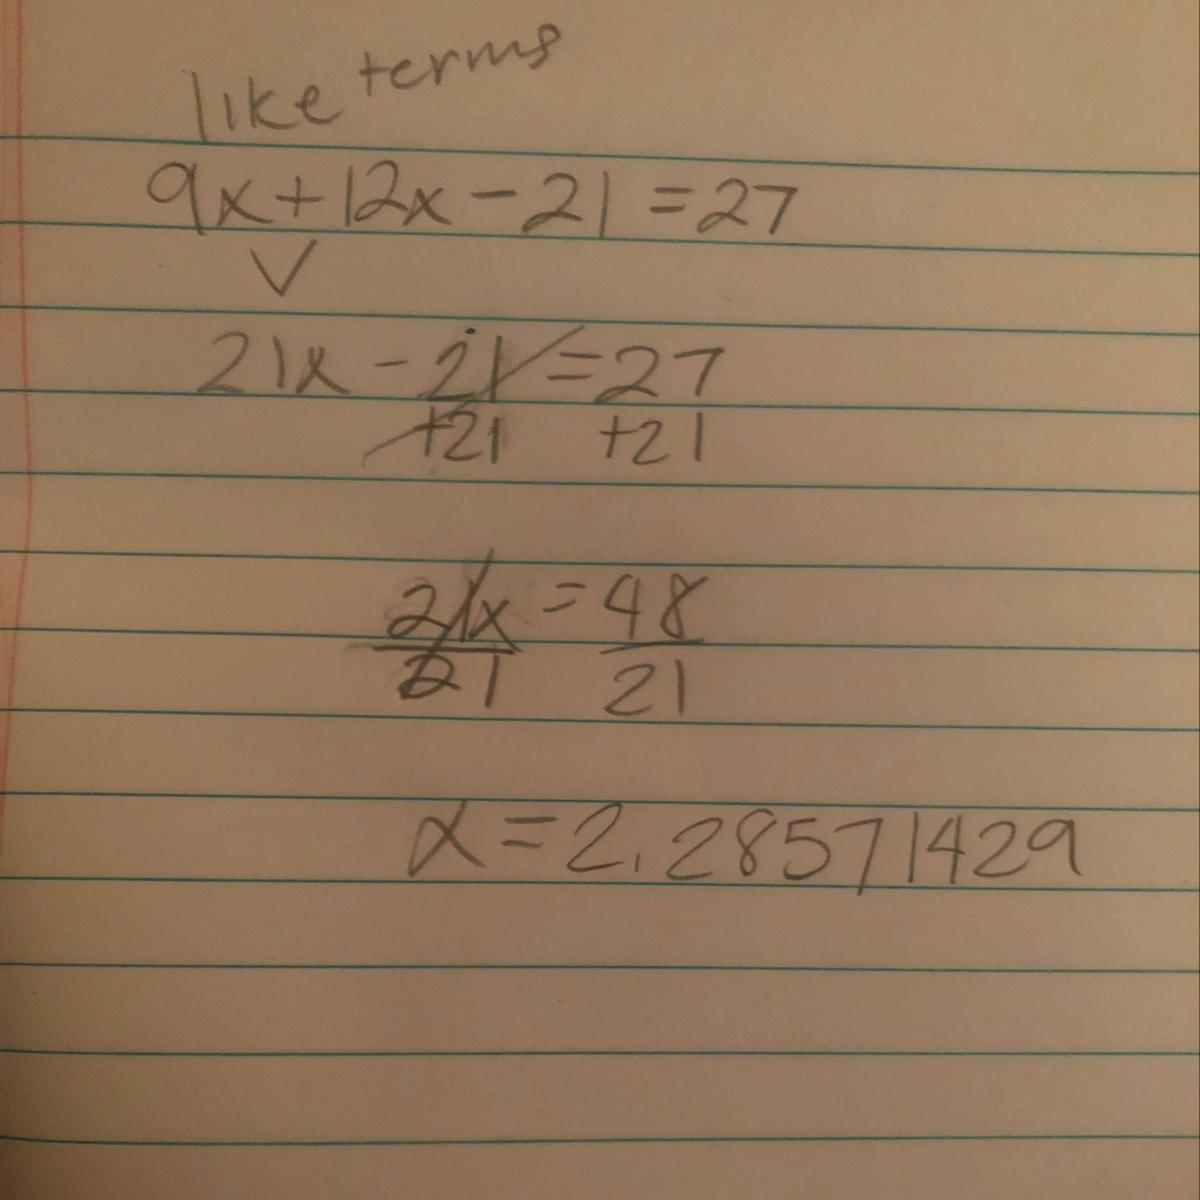 like terms
9x+12x-21=27
21x-21=27
+21 +21
21x=48
21 21
x=2.28571429